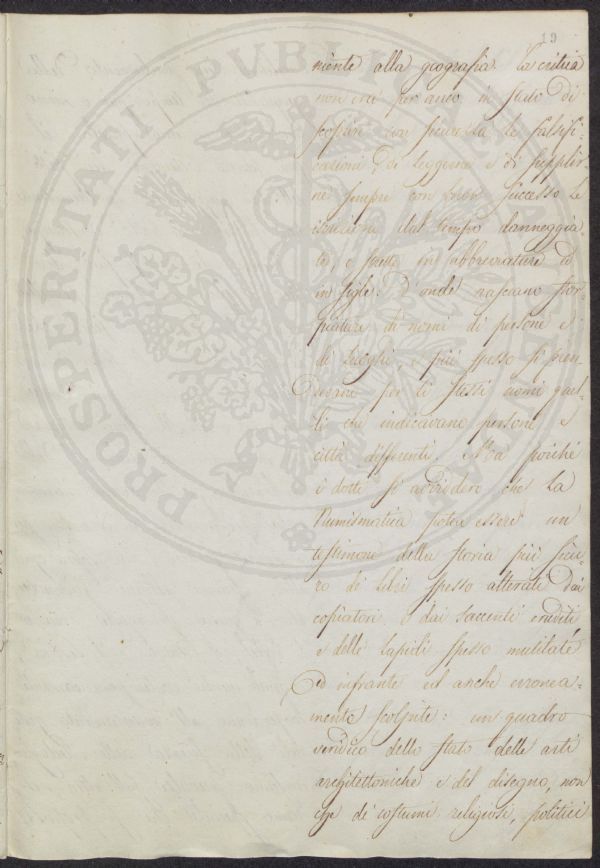 19
niente alla geografia. La critica
non era per anco in stato di
scoprir con sicurezza le falsifi-
cazioni, di leggere e di supplir-
ne sempre con successo le
iscrizioni dal tempo danneggia-
te, e fatte in abbreviature ed
in sigle. D'onde nascano stor-
piature di nomi di persone e
di luoghi, e più spesso si pren-
devano per li stessi nomi quel-
li che indicavano persone, e
città differenti. Ma poiché
i dotti si avvidero che la
Numismatica potea essere un
testimone della storia più sicu-
ro de' libri spesso alterati dai
copiatori e dai saccenti eruditi,
e delle lapidi spesso mutilate
ed infrante ed anche erronea-
mente scolpite: un quadro
veridico dello stato delle arti
architettoniche e del disegno, non
che de' costumi religiosi, politici
PROSPERITATI PVBLICAE AVGENDAE